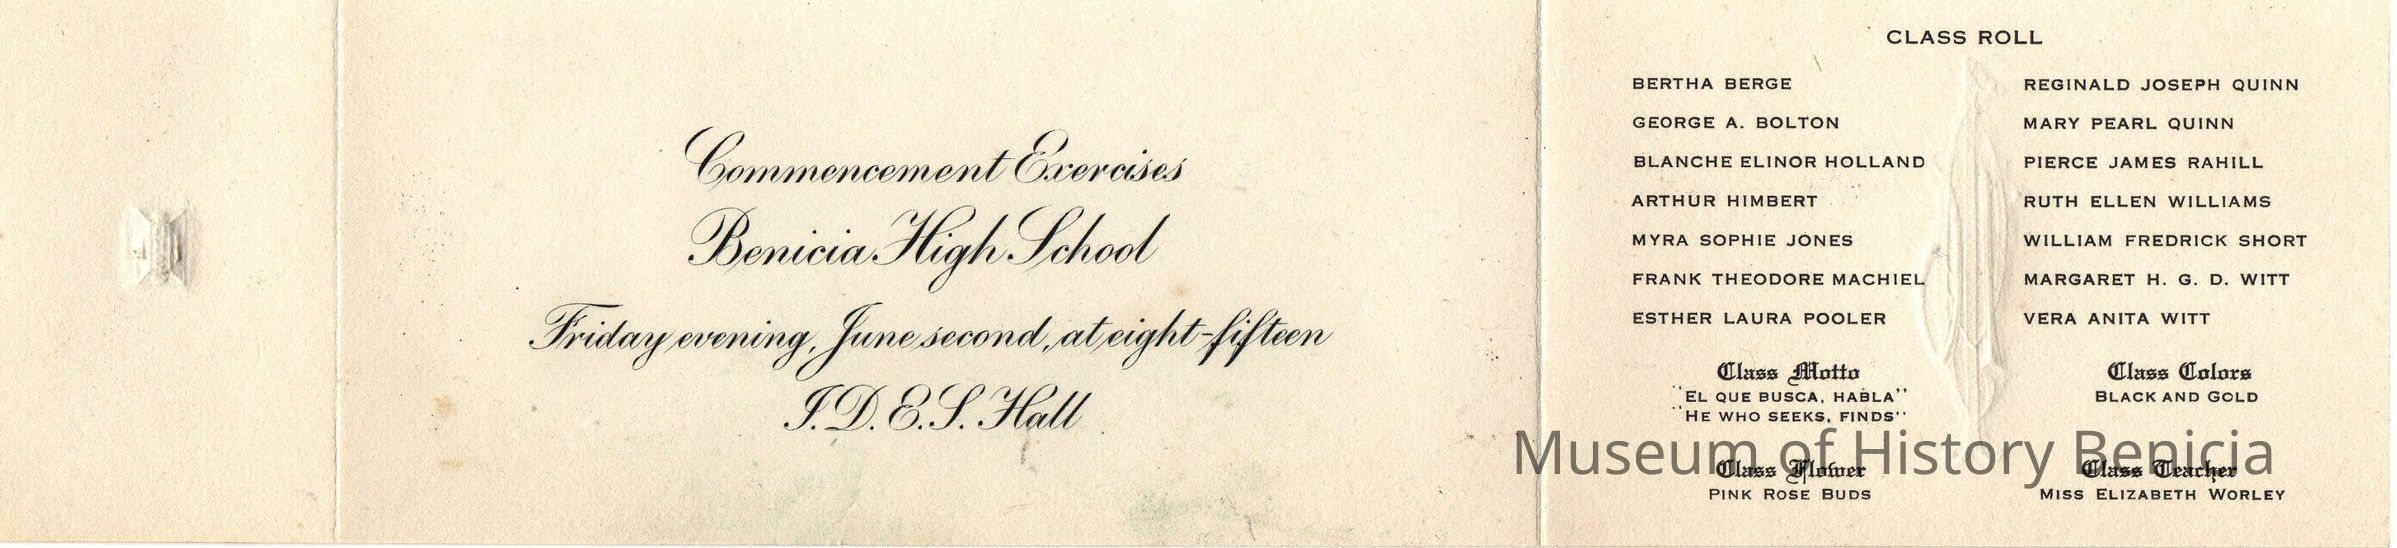 Commencement Exercises
Benicia High School
Friday evening, June second, at eight-fifteen
I. D. E. S. Hall
CLASS ROLL
BERTHA BERGE
GEORGE A. BOLTON
BLANCHE ELINOR HOLLAND
ARTHUR HIMBERT
MYRA SOPHIE JONES
FRANK THEODORE MACHIEL
ESTHER LAURA POOLER
REGINALD JOSEPH QUINN
MARY PEARL QUINN
PIERCE JAMES RAHILL
RUTH ELLEN WILLIAMS
WILLIAM FREDRICK SHORT
MARGARET H. G. D. WITT
VERA ANITA WITT
Class Motto
"EL QUE BUSCA, HABLA"
"HE WHO SEEKS, FINDS"
Class Colors
BLACK AND GOLD
Class Flower
PINK ROSE BUDS
Class Teacher
MISS ELIZABETH WORLEY
Museum of History Benicia